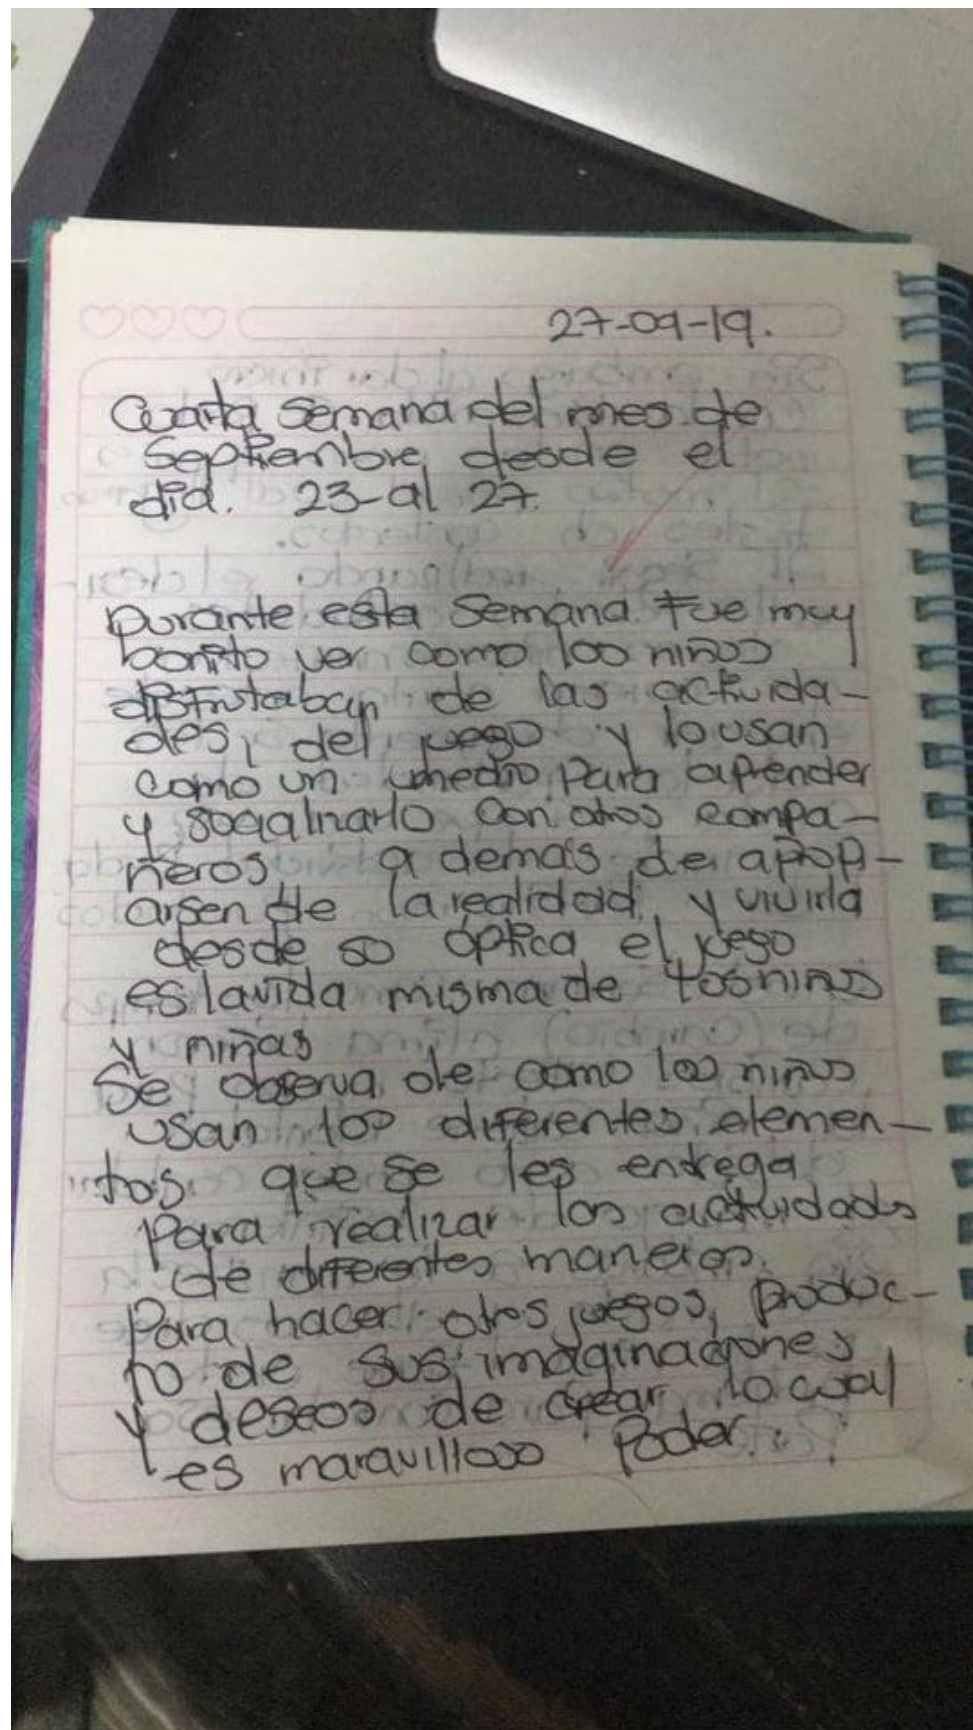 27-09-19.
Cuarta semana del mes de
Septiembre, desde el
día. 23-al 27.
Durante esta semana fue muy
bonito ver como los niños
disfrutaban de las activida-
des, del juego y lo usan
como un medio para aprender
y socializarlo con otros compa-
ñeros, a demás de apop-
arsen de la realidad, y vivirla
desde so óptica, el juego
es la vida misma de los niños
y niñas
Se observa de como los niños
usan los diferentes elemen-
tos que se les entrega
para realizar las actividades
de diferentes maneras.
Para hacer otros juegos, produc-
to de sus imaginaciones,
y deseos de crear, lo cual
es maravilloso Poder.